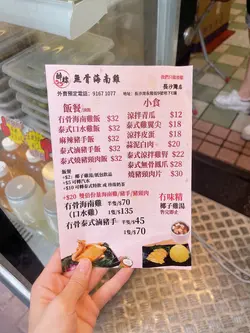 無骨海南雞
外賣預定電話：9167 1077
長沙灣店
飯餐
小食
冇骨海南雞飯 $32
泰式口水雞飯 $32
麻辣豬手飯 $32
泰式滷豬手飯 $32
泰式燒豬頸肉飯 $32
涼拌青瓜 $12
泰式雞翼尖 $18
涼拌皮蛋 $18
蒜泥白肉 $20
泰式涼拌雞腎 $22
泰式無骨鳳爪 $28
燒豬頸肉片 $30
飯餐
+$5 可轉汽水
冇骨海南雞 半隻/$70
(口水雞) 1隻/$135
冇骨泰式滷豬手 半隻/$45
1隻/$70
冇味精
椰子雞湯
售完即止